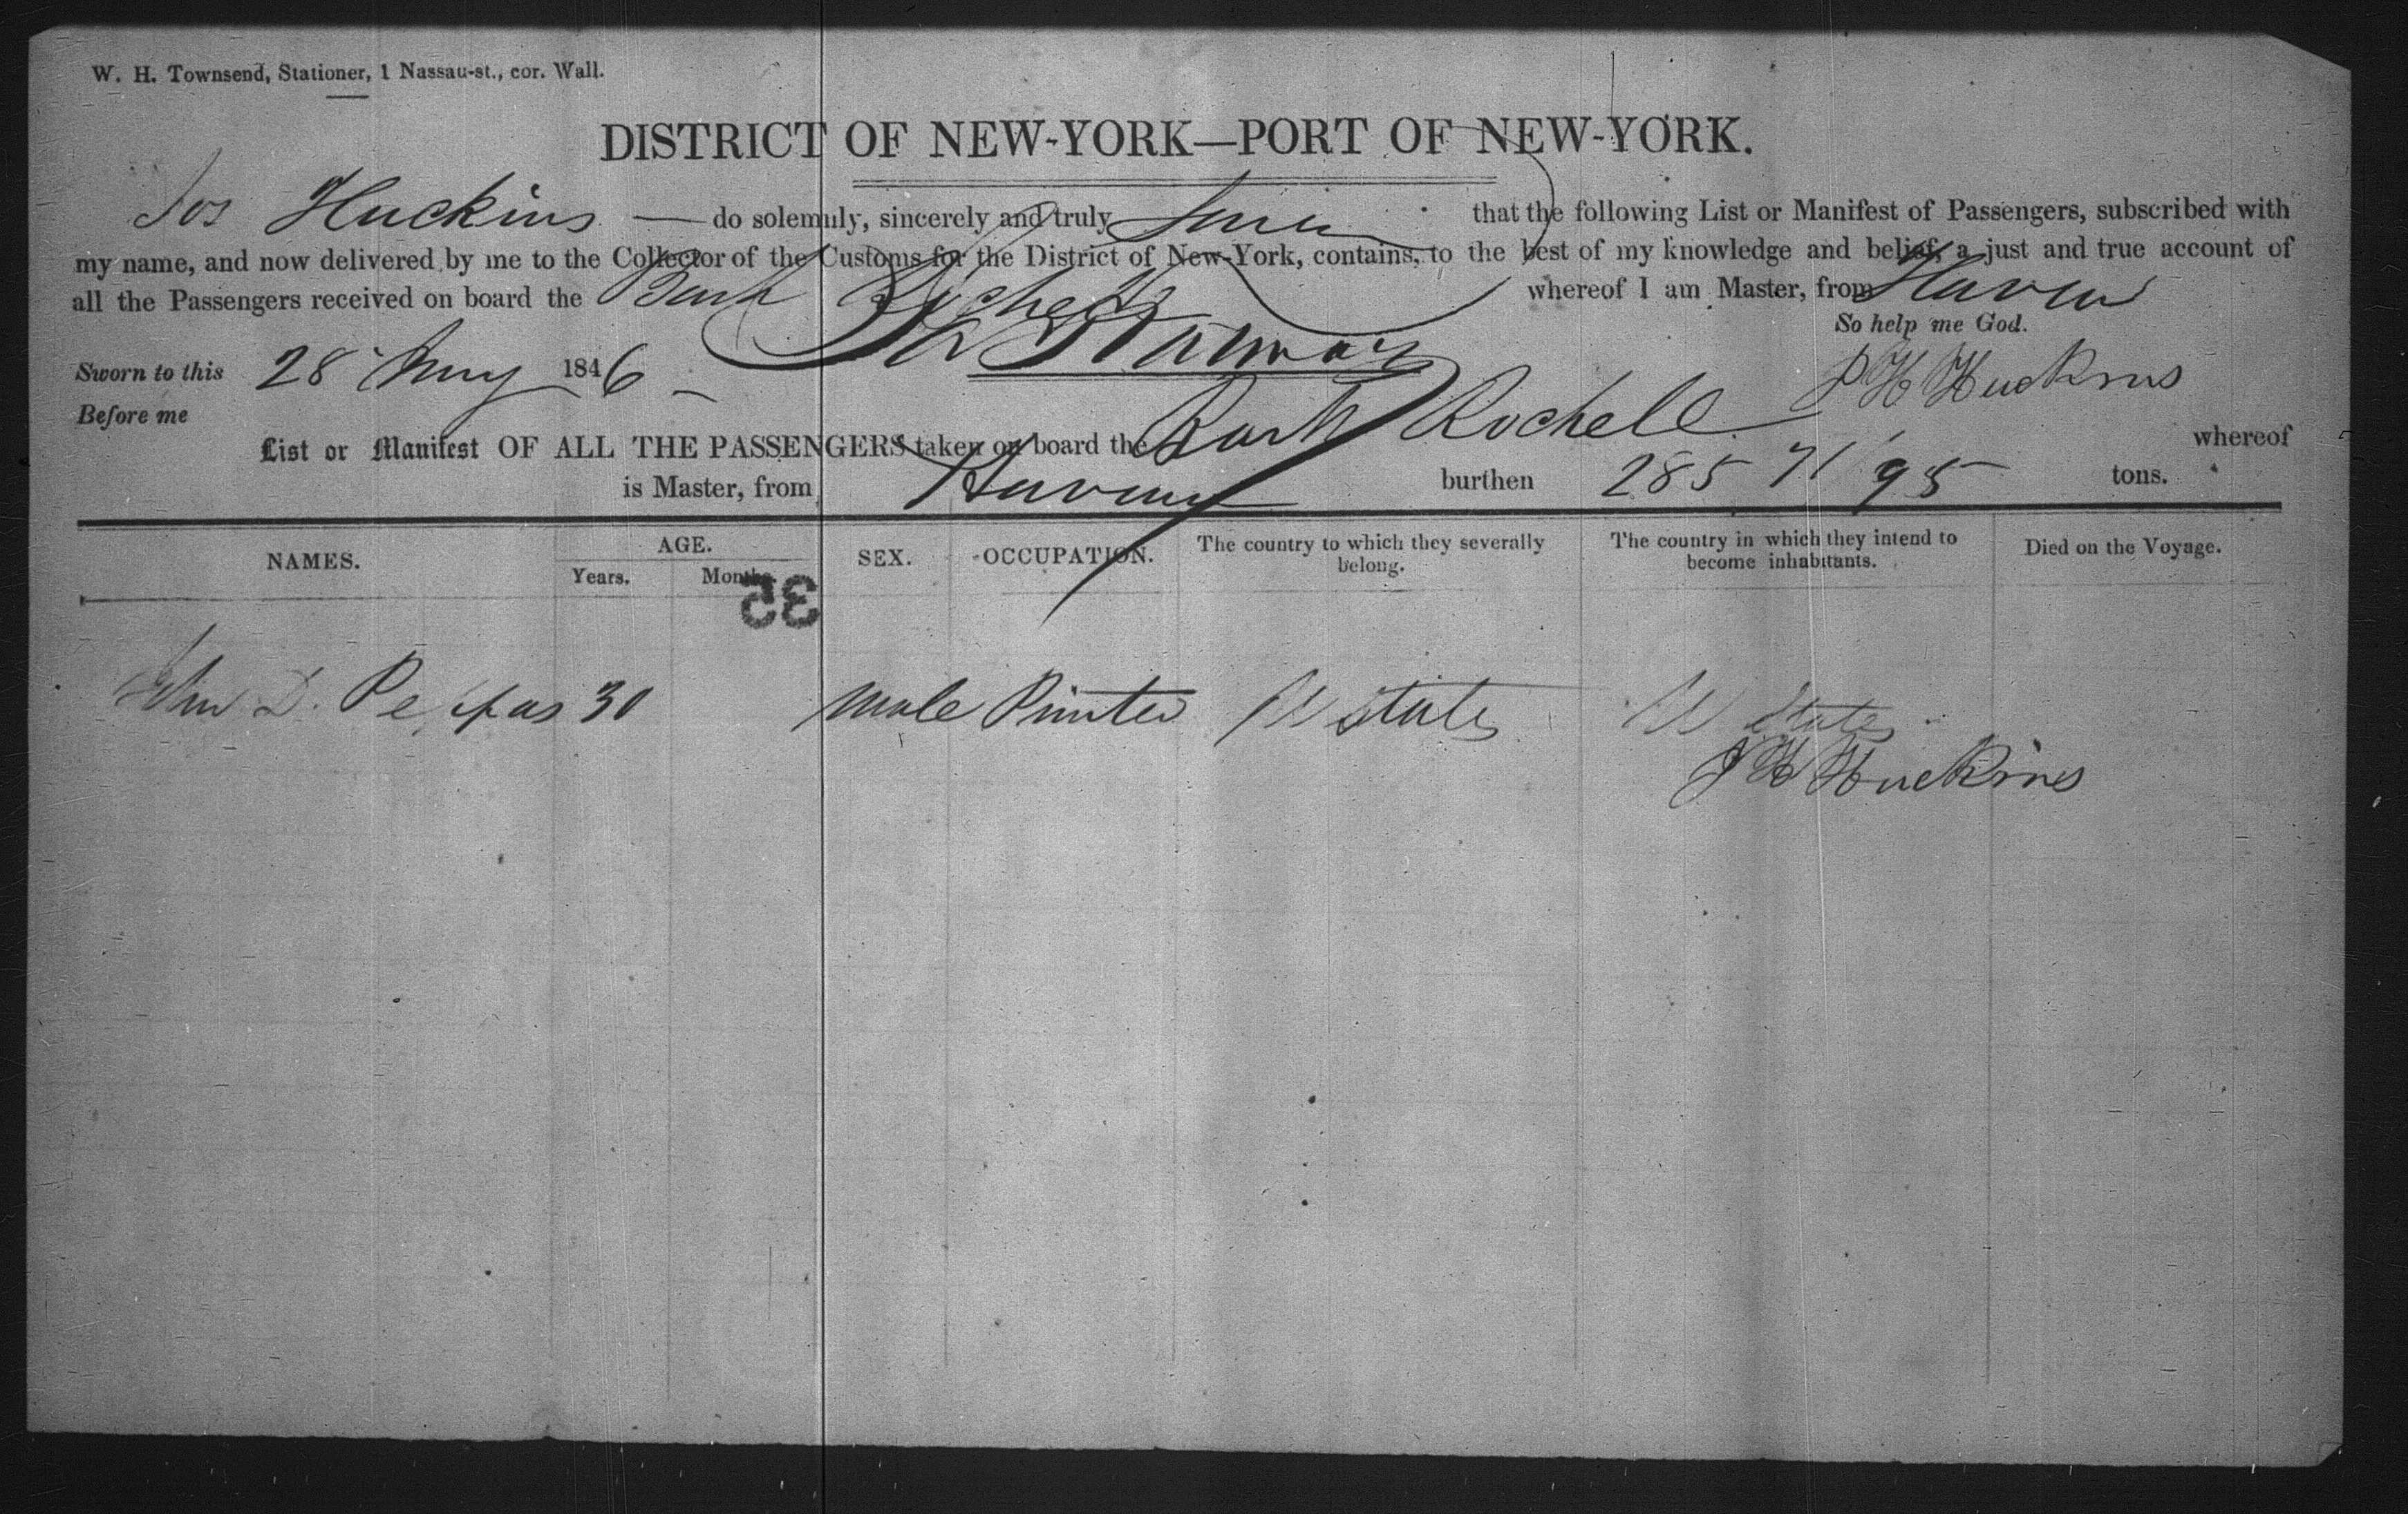 W. H. Townsend, Stationer, 1 Nassau-st., cor. Wall.
DISTRICT OF NEW-YORK—PORT OF NEW-YORK.
Jos Huckins — do solemnly, sincerely and truly that the following List or Manifest of Passengers, subscribed with
my name, and now delivered by me to the Collector of the Customs for the District of New-York, contains, to the best of my knowledge and belief, a just and true account of
all the Passengers received on board the Bark Rochelle whereof I am Master, from Havana
So help me God.
Sworn to this 28 May 1846 — J H Huckins
Before me
List or Manifest OF ALL THE PASSENGERS taken on board the Bark Rochell whereof
is Master, from Havana burthen 285 71/95 tons.
NAMES. AGE. SEX. OCCUPATION. The country to which they severally belong. The country in which they intend to become inhabitants. Died on the Voyage.
Years. Months.
35
John D. 30 Male Printer U States U States
J H Huckins